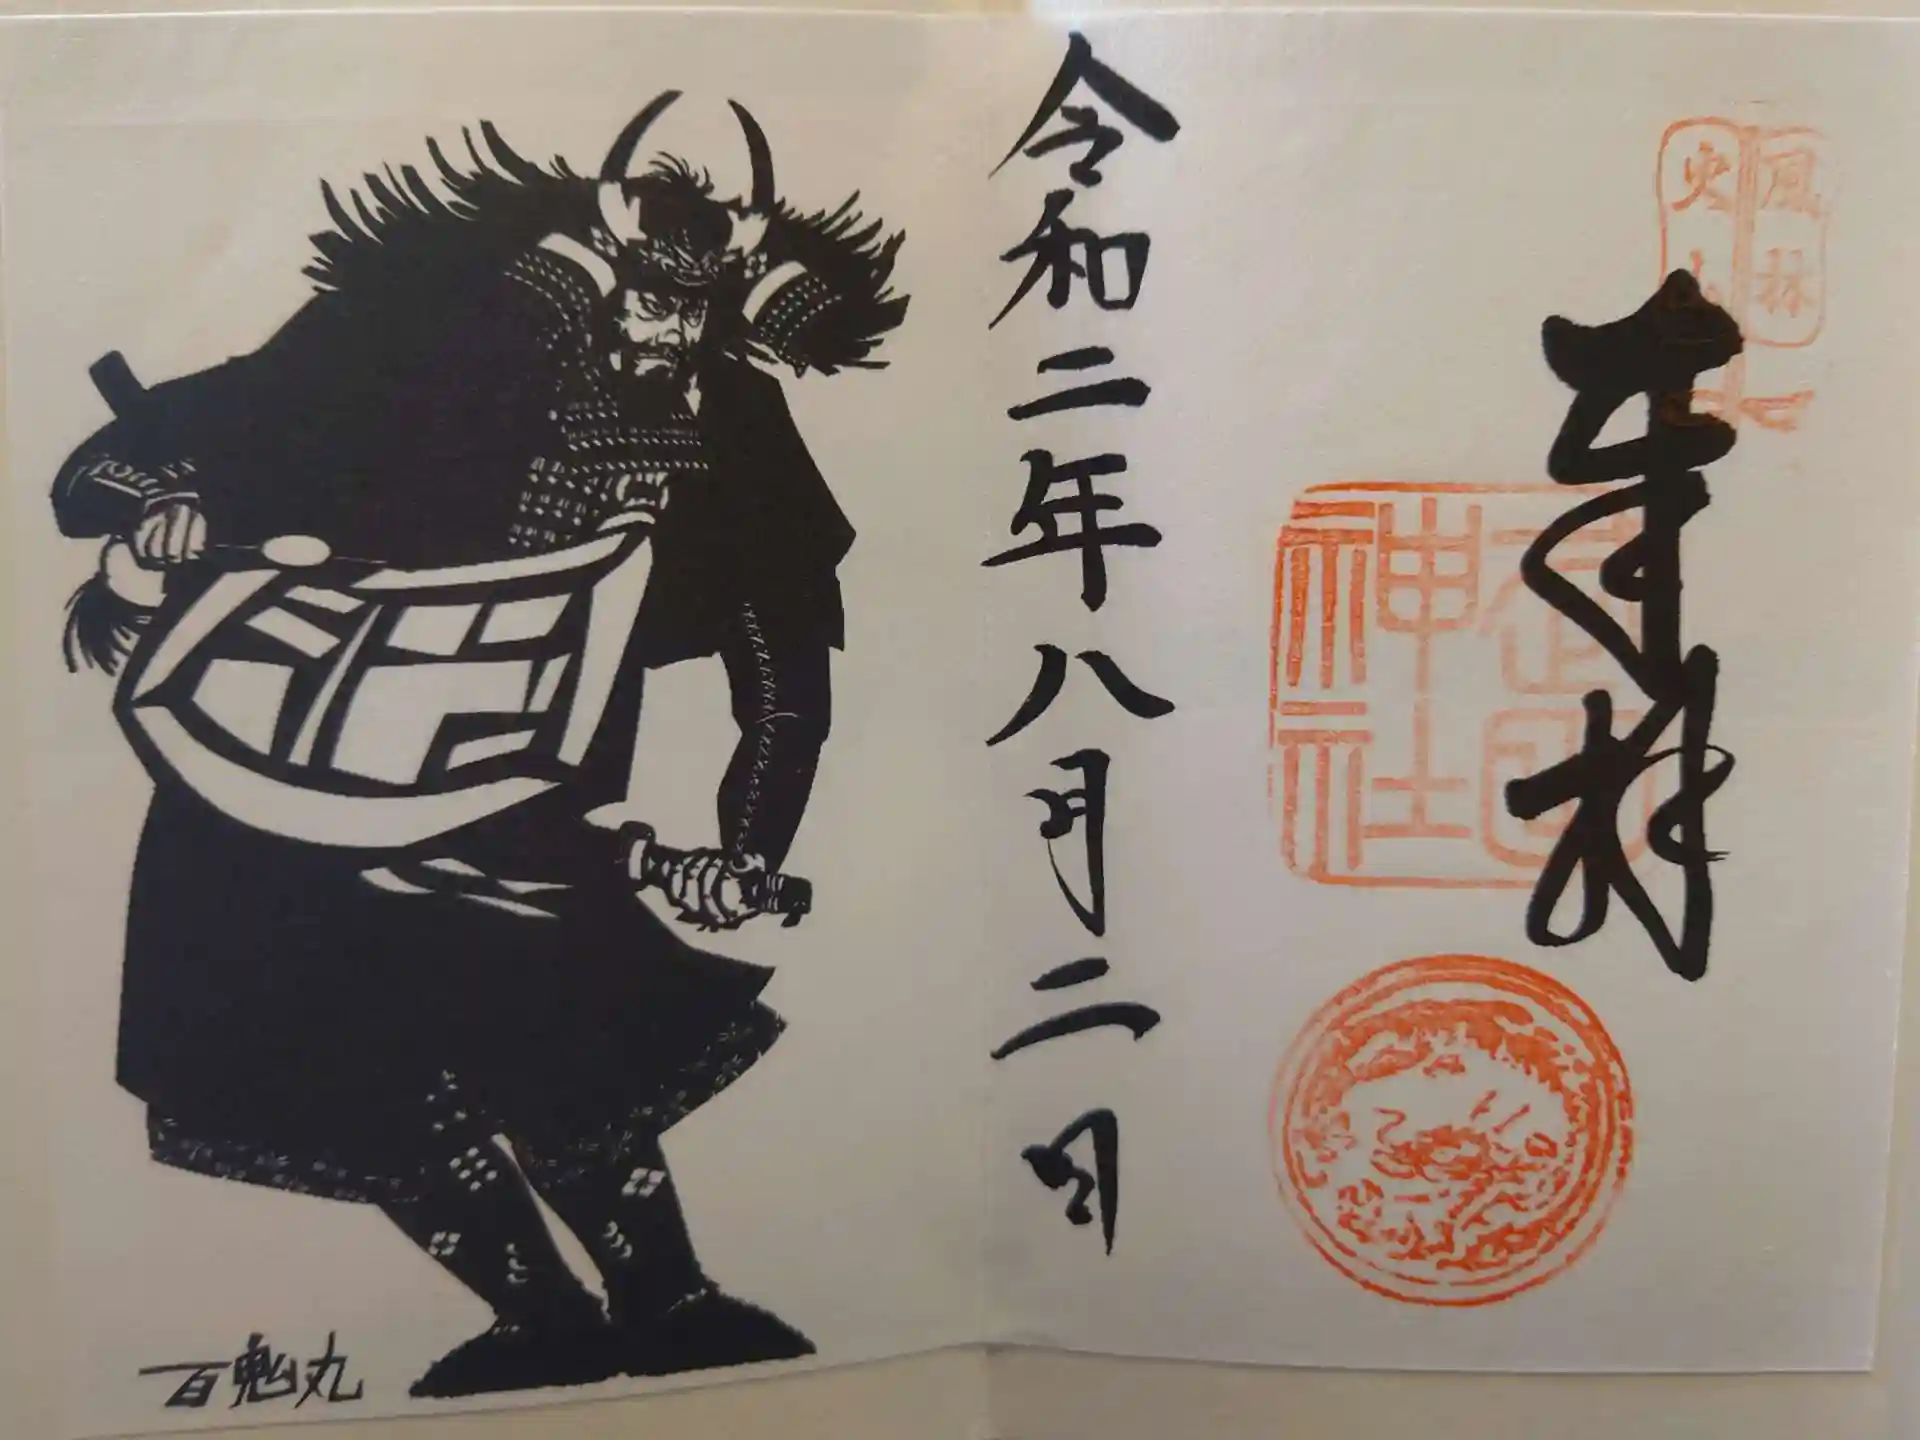 風林
火山
奉拝
武田
神社
令和二年八月二日
百鬼丸